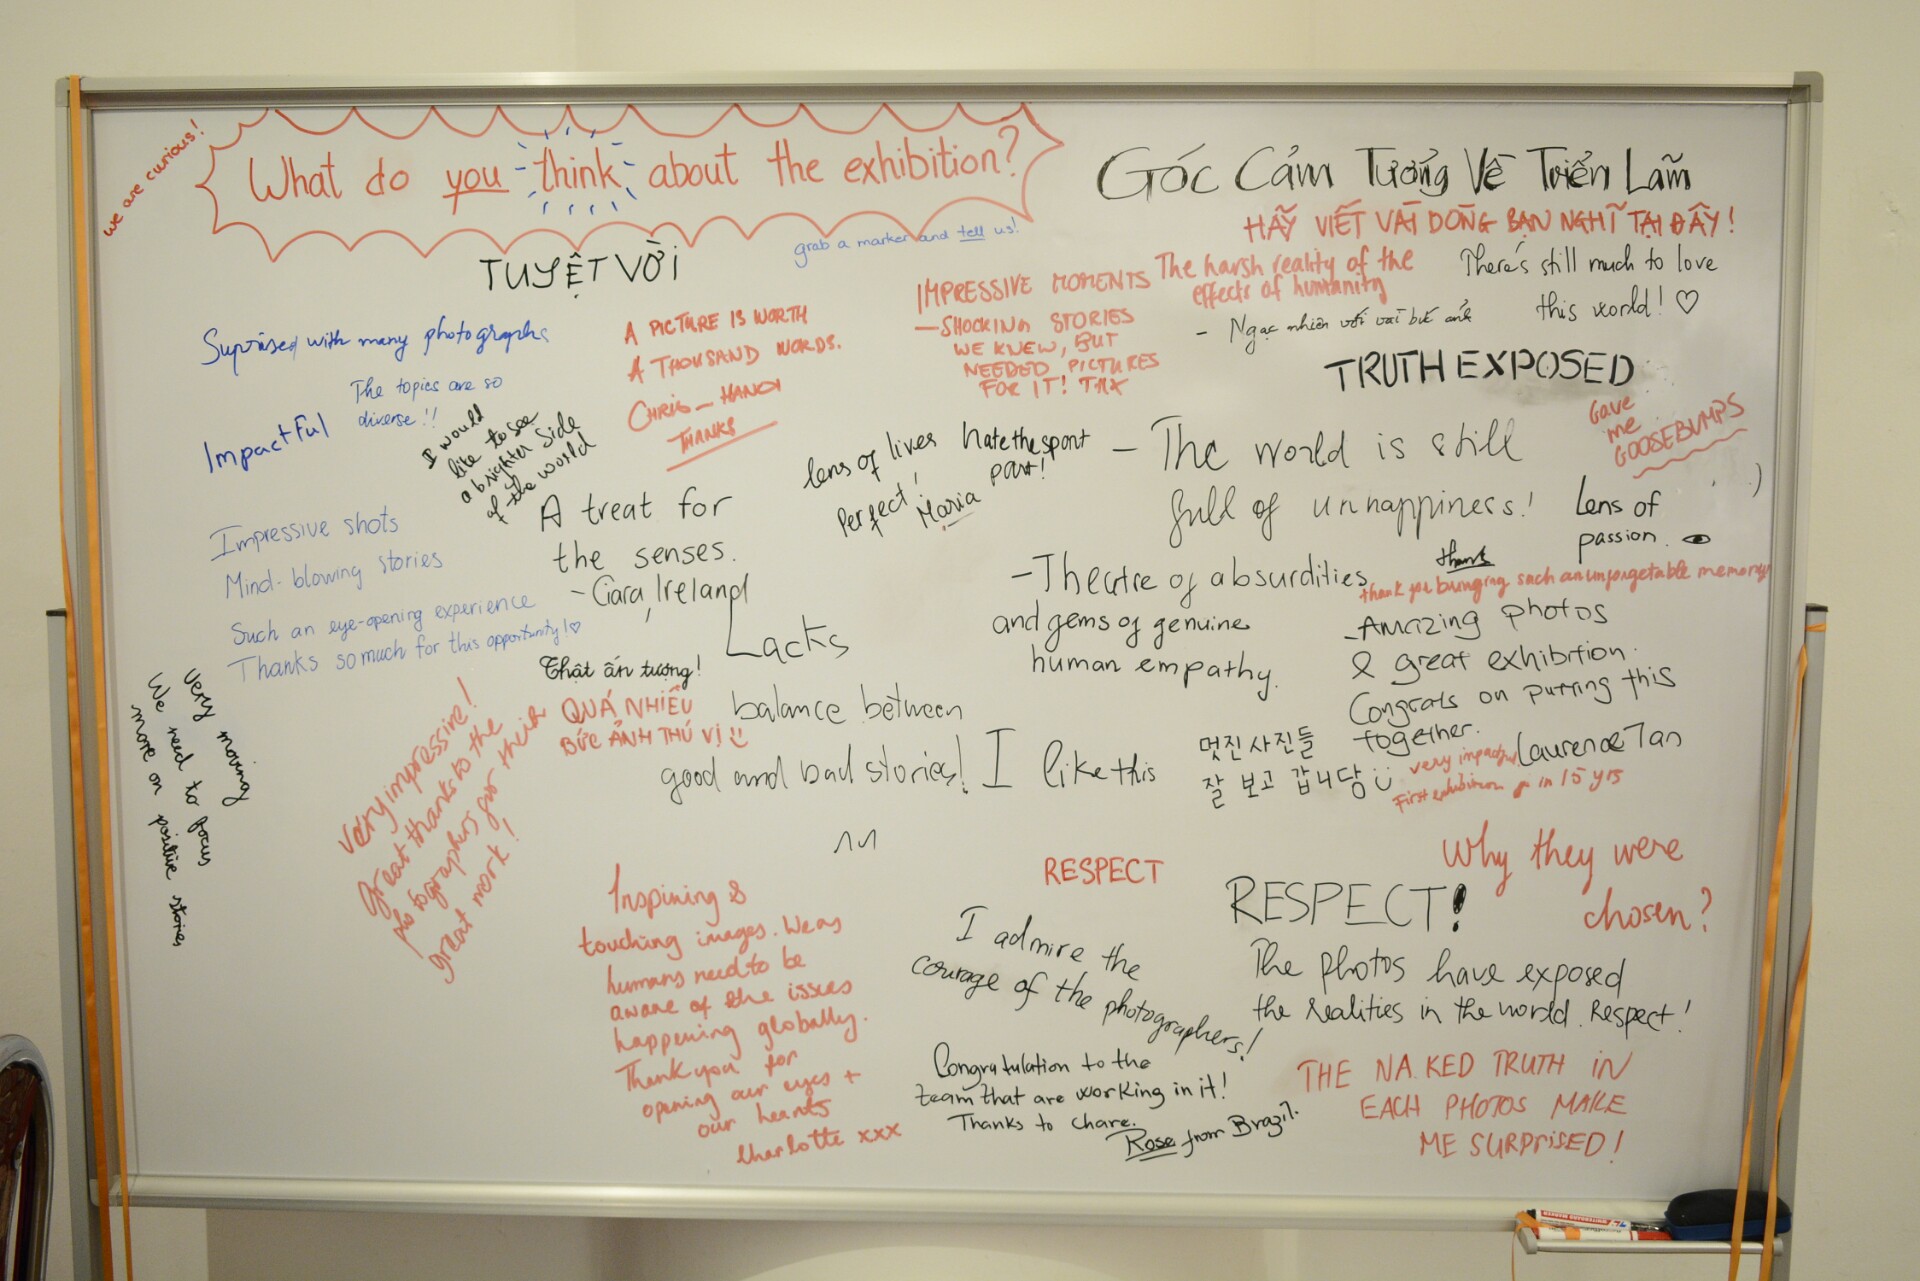 we are curious!
What do you think about the exhibition?
grab a marker and tell us!
GÓC CẢM TƯỞNG VỀ TRIỂN LÃM
HÃY VIẾT VÀI DÒNG BẠN NGHĨ TẠI ĐÂY!
TUYỆT VỜI
Suprised with many photographs
The topics are so
diverse!!
Impactful
I would
like to see
a brighter side
of the world
A PICTURE IS WORTH
A THOUSAND WORDS.
CHRIS_HANOI
THANKS
IMPRESSIVE MOMENTS
—SHOCKING STORIES
WE KNEW, BUT
NEEDED PICTURES
FOR IT! TNX
The harsh reality of the
effects of humanity
- Ngạc nhiên với
There's still much to love
this world! ♡
TRUTH EXPOSED
Gave
me
GOOSEBUMPS
lens of lives
Perfect!
Maria
hate the sport
part!
— The world is still
full of unhappiness!
Lens of
passion.
Impressive shots
Mind-blowing stories
Such an eye-opening experience
Thanks so much for this opportunity!♡
A treat for
the senses.
- Ciara, Ireland
—Theatre of absurdities
and gems of genuine
human empathy.
thanks
thank you bringing such an unforgetable memory
-AMAZING photos
& great exhibition.
Congrats on putting this
together.
Laurence Tan
very impactful
First exhibition in 15 yrs
Lacks
balance between
good and bad stories!
Thật ấn tượng!
QUÁ NHIỀU
BỨC ẢNH THÚ VỊ
I like this
멋진 사진들
잘 보고 갑니당
very moving
We need to focus
more on positive stories
very impressive!
Great thanks to the
photographers for their
great work!
Inspiring &
touching images. We as
humans need to be
aware of the issues
happening globally.
Thank you for
opening our eyes +
our hearts
Charlotte xxx
RESPECT
I admire the
courage of the photographers!
Congratulation to the
team that are working in it!
Thanks to chare.
Rose from Brazil.
Why they were
chosen?
RESPECT!
The photos have exposed
the realities in the world. Respect!
THE NAKED TRUTH IN
EACH PHOTOS MAKE
ME SURPRISED!